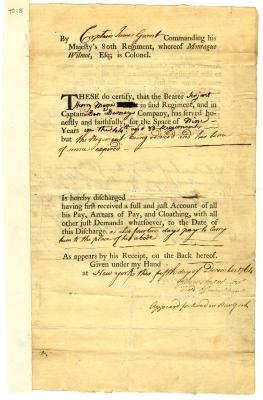 By Captain James Grant Commanding his
Majesty's 80th Regiment, whereof Montague
Wilmot, Esq; is Colonel.
THESE do certify, that the Bearer Serjant
Thorg in said Regiment, and in
Captain Company, has served honestly
and faithfully, for the Space of Nine
Years in the 44th and 80 Regiments
but the Regiment being reduced and his time
of expired
Is hereby discharged
having first received a full and just Account of all
his Pay, Arrears of Pay, and Cloathing, with all
other just Demands whatsoever, to the Date of
this Discharge. also fourteen days pay to carry
him to the place of his abode
As appears by his Receipt, on the Back hereof.
Given under my Hand
at New York this fifth day of December 1764